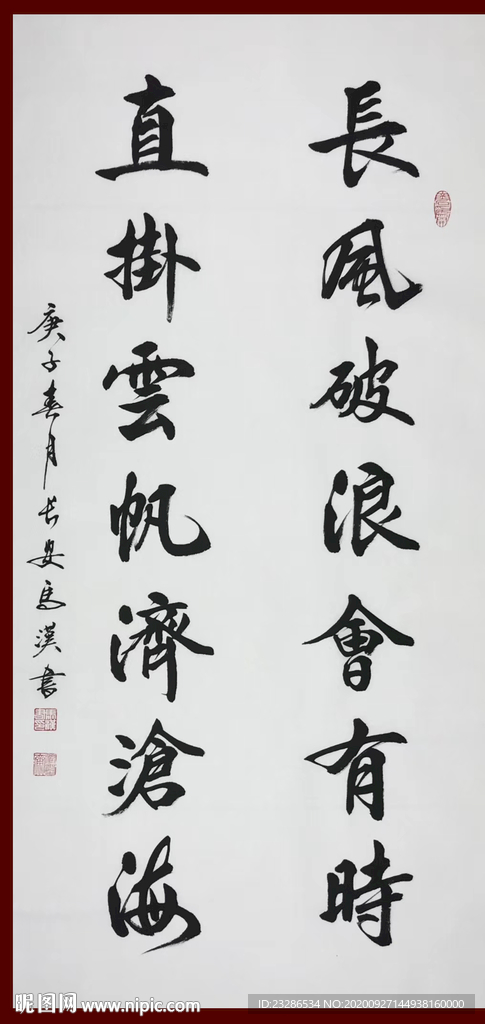 長風破浪會有時
直掛雲帆濟滄海
庚子春月长安馬漢書
昵图网 www.nipic.com
ID:23286534 NO:20200927144938160000